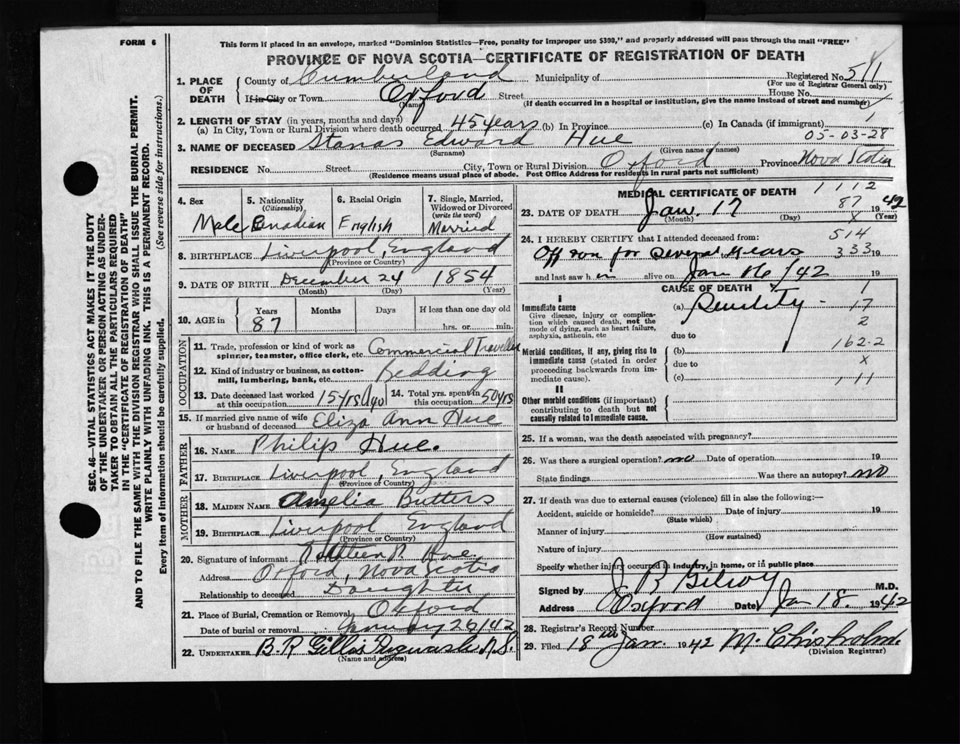 FORM 6
This form if placed in an envelope, marked "Dominion Statistics—Free, penalty for improper use $300," and properly addressed will pass through the mail "FREE"
PROVINCE OF NOVA SCOTIA—CERTIFICATE OF REGISTRATION OF DEATH
SEC. 46—VITAL STATISTICS ACT MAKES IT THE DUTY
OF THE UNDERTAKER OR PERSON ACTING AS UNDER-
TAKER TO OBTAIN ALL THE PARTICULARS REQUIRED
IN THE "CERTIFICATE OF REGISTRATION OF DEATH"
AND TO FILE THE SAME WITH THE DIVISION REGISTRAR WHO SHALL ISSUE THE BURIAL PERMIT.
WRITE PLAINLY WITH UNFADING INK. THIS IS A PERMANENT RECORD.
Every item of information should be carefully supplied. (See reverse side for instructions.)
1. PLACE OF DEATH
County of Cumberland Municipality of Registered No. 511
(For use of Registrar General only)
If in City or Town Oxford Street House No.
(Name) (If death occurred in a hospital or institution, give the name instead of street and number)
2. LENGTH OF STAY (in years, months and days)
(a) In City, Town or Rural Division where death occurred 45 years (b) In Province (c) In Canada (if immigrant) 1
05-03-28
3. NAME OF DECEASED Edward Hue
(Surname) (Given name or names)
RESIDENCE No. Street City, Town or Rural Division Oxford Province Nova Scotia
(Residence means usual place of abode. Post Office Address for residents in rural parts not sufficient)
4. Sex
Male
5. Nationality
(Citizenship)
Canadian
6. Racial Origin
English
7. Single, Married, Widowed or Divorced
(write the word)
Married
8. BIRTHPLACE Liverpool, England
(Province or Country)
9. DATE OF BIRTH December 24 1854
(Month) (Day) (Year)
10. AGE in Years Months Days If less than one day old
87 hrs. or min.
OCCUPATION
11. Trade, profession or kind of work as spinner, teamster, office clerk, etc. Commercial Traveller
12. Kind of industry or business, as cotton-mill, lumbering, bank, etc. Bedding
13. Date deceased last worked at this occupation 15 yrs ago
14. Total yrs. spent in this occupation 50 yrs
15. If married give name of wife or husband of deceased Eliza Ann Hue
FATHER
16. NAME Philip Hue.
17. BIRTHPLACE Liverpool, England
(Province of Country)
MOTHER
18. MAIDEN NAME Amelia Butters
19. BIRTHPLACE Liverpool England
(Province or Country)
20. Signature of informant Hue
Address Oxford, Nova Scotia
Relationship to deceased Daughter
21. Place of Burial, Cremation or Removal Oxford
Date of burial or removal January 20/42
22. UNDERTAKER B.R Gillis Pugwash N.S.
(Name and address)
MEDICAL CERTIFICATE OF DEATH 1112
23. DATE OF DEATH Jan. 17 87 1942
(Month) (Day) (Year)
24. I HEREBY CERTIFY that I attended deceased from: 514
Off + on for several years 333 19
and last saw h im alive on Jan 16/42 19
CAUSE OF DEATH 1
I
Immediate cause (a) Senility 17
Give disease, injury or complication which caused death, not the mode of dying, such as heart failure, asphyxia, asthenia, etc 2
due to
162-2
Morbid conditions, if any, giving rise to immediate cause (stated in order proceeding backwards from immediate cause). (b)
due to x
(c) 111
II
Other morbid conditions (if important) contributing to death but not causally related to immediate cause.
25. If a woman, was the death associated with pregnancy?
26. Was there a surgical operation? no Date of operation 19
State findings Was there an autopsy? no
27. If death was due to external causes (violence) fill in also the following:—
Accident, suicide or homicide? Date of injury 19
(State which)
Manner of injury
(How sustained)
Nature of injury
Specify whether injury occurred in industry, in home, or in public place
Signed by M.D.
Address Oxford Date Jan 18. 1942
28. Registrar's Record Number
29. Filed 18th Jan. 1942 M. Chisholm.
(Division Registrar)